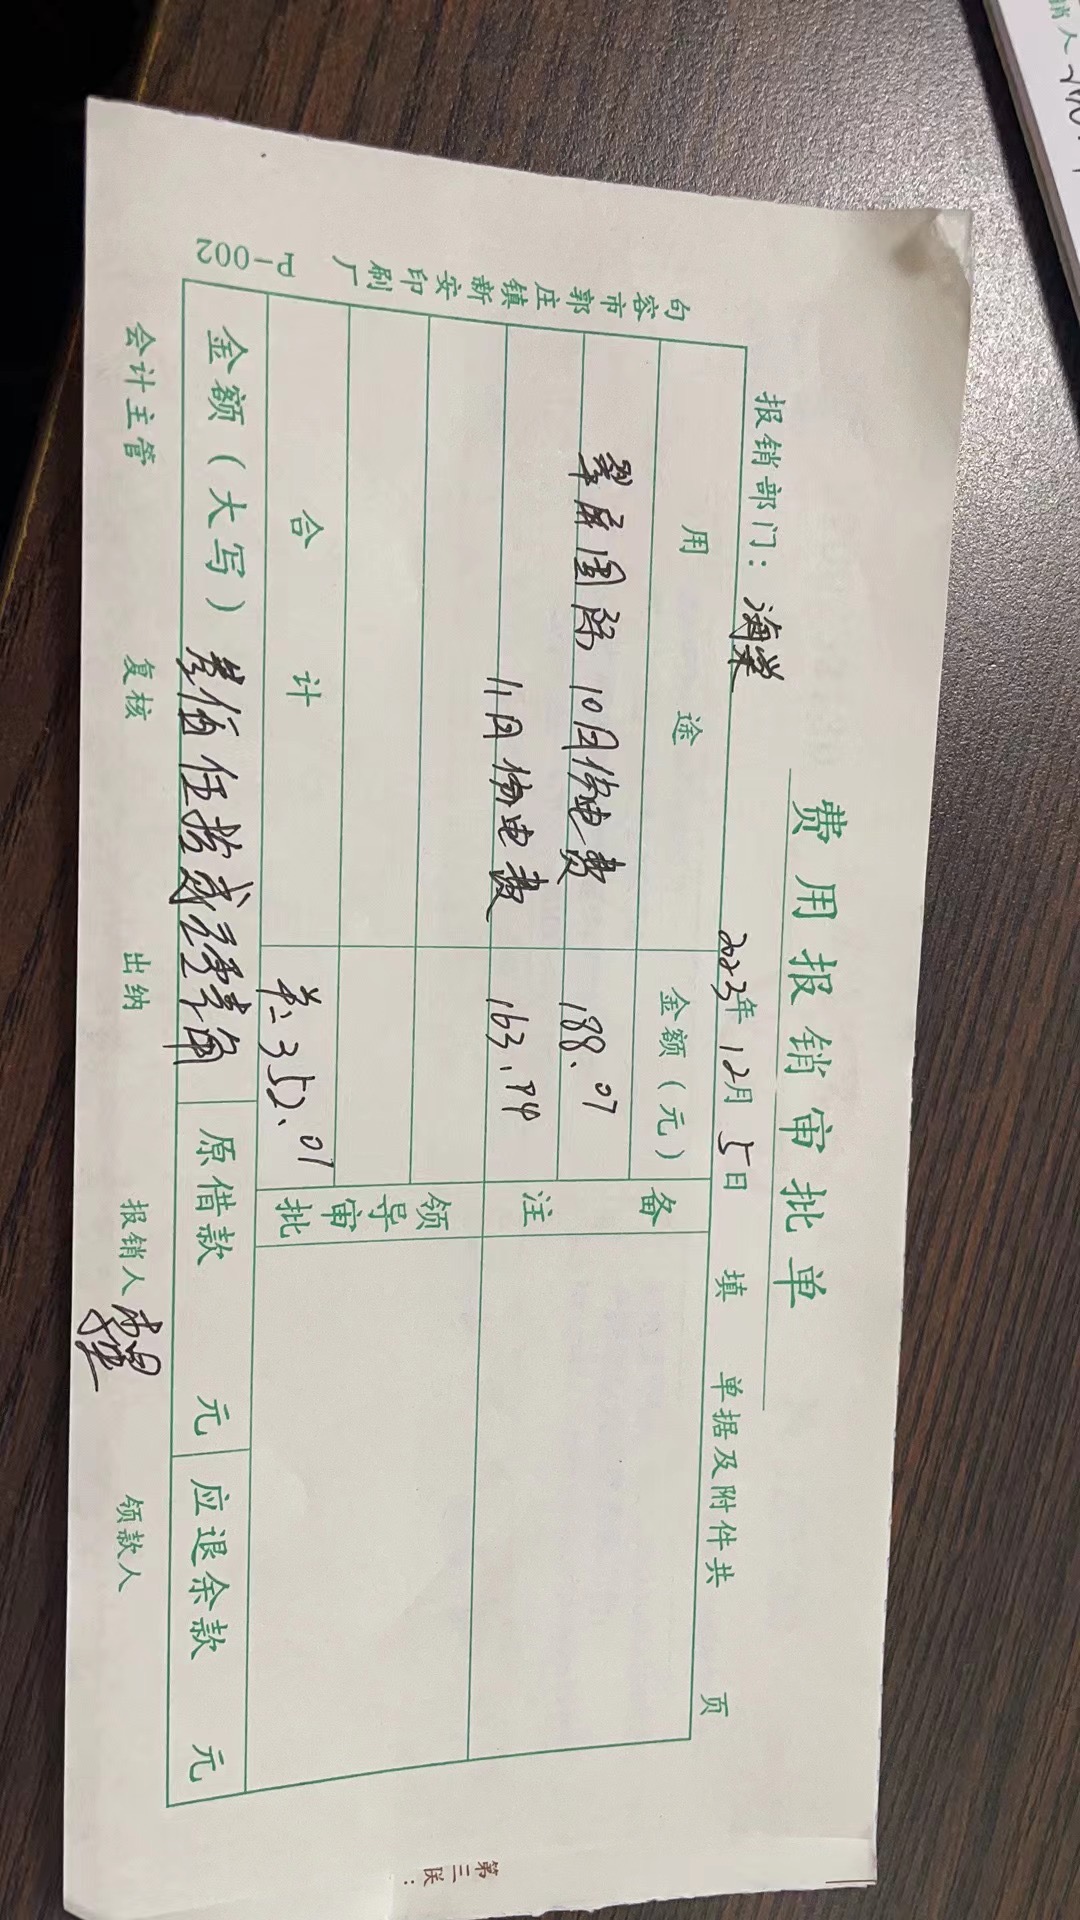 费用报销审批单
报销部门：海棠 2023年12月5日 填 单据及附件共 页
用途 金额（元） 备注
翠屏国际 10月份电费 188.07
11月份电费 163.94
领导审批
合计 共:352.01
金额（大写）叁佰伍拾贰元零壹角 原借款 元 应退余款 元
会计主管 复核 出纳 报销人 领款人
句容市郭庄镇新安印刷厂 P-002
第三联：
销人